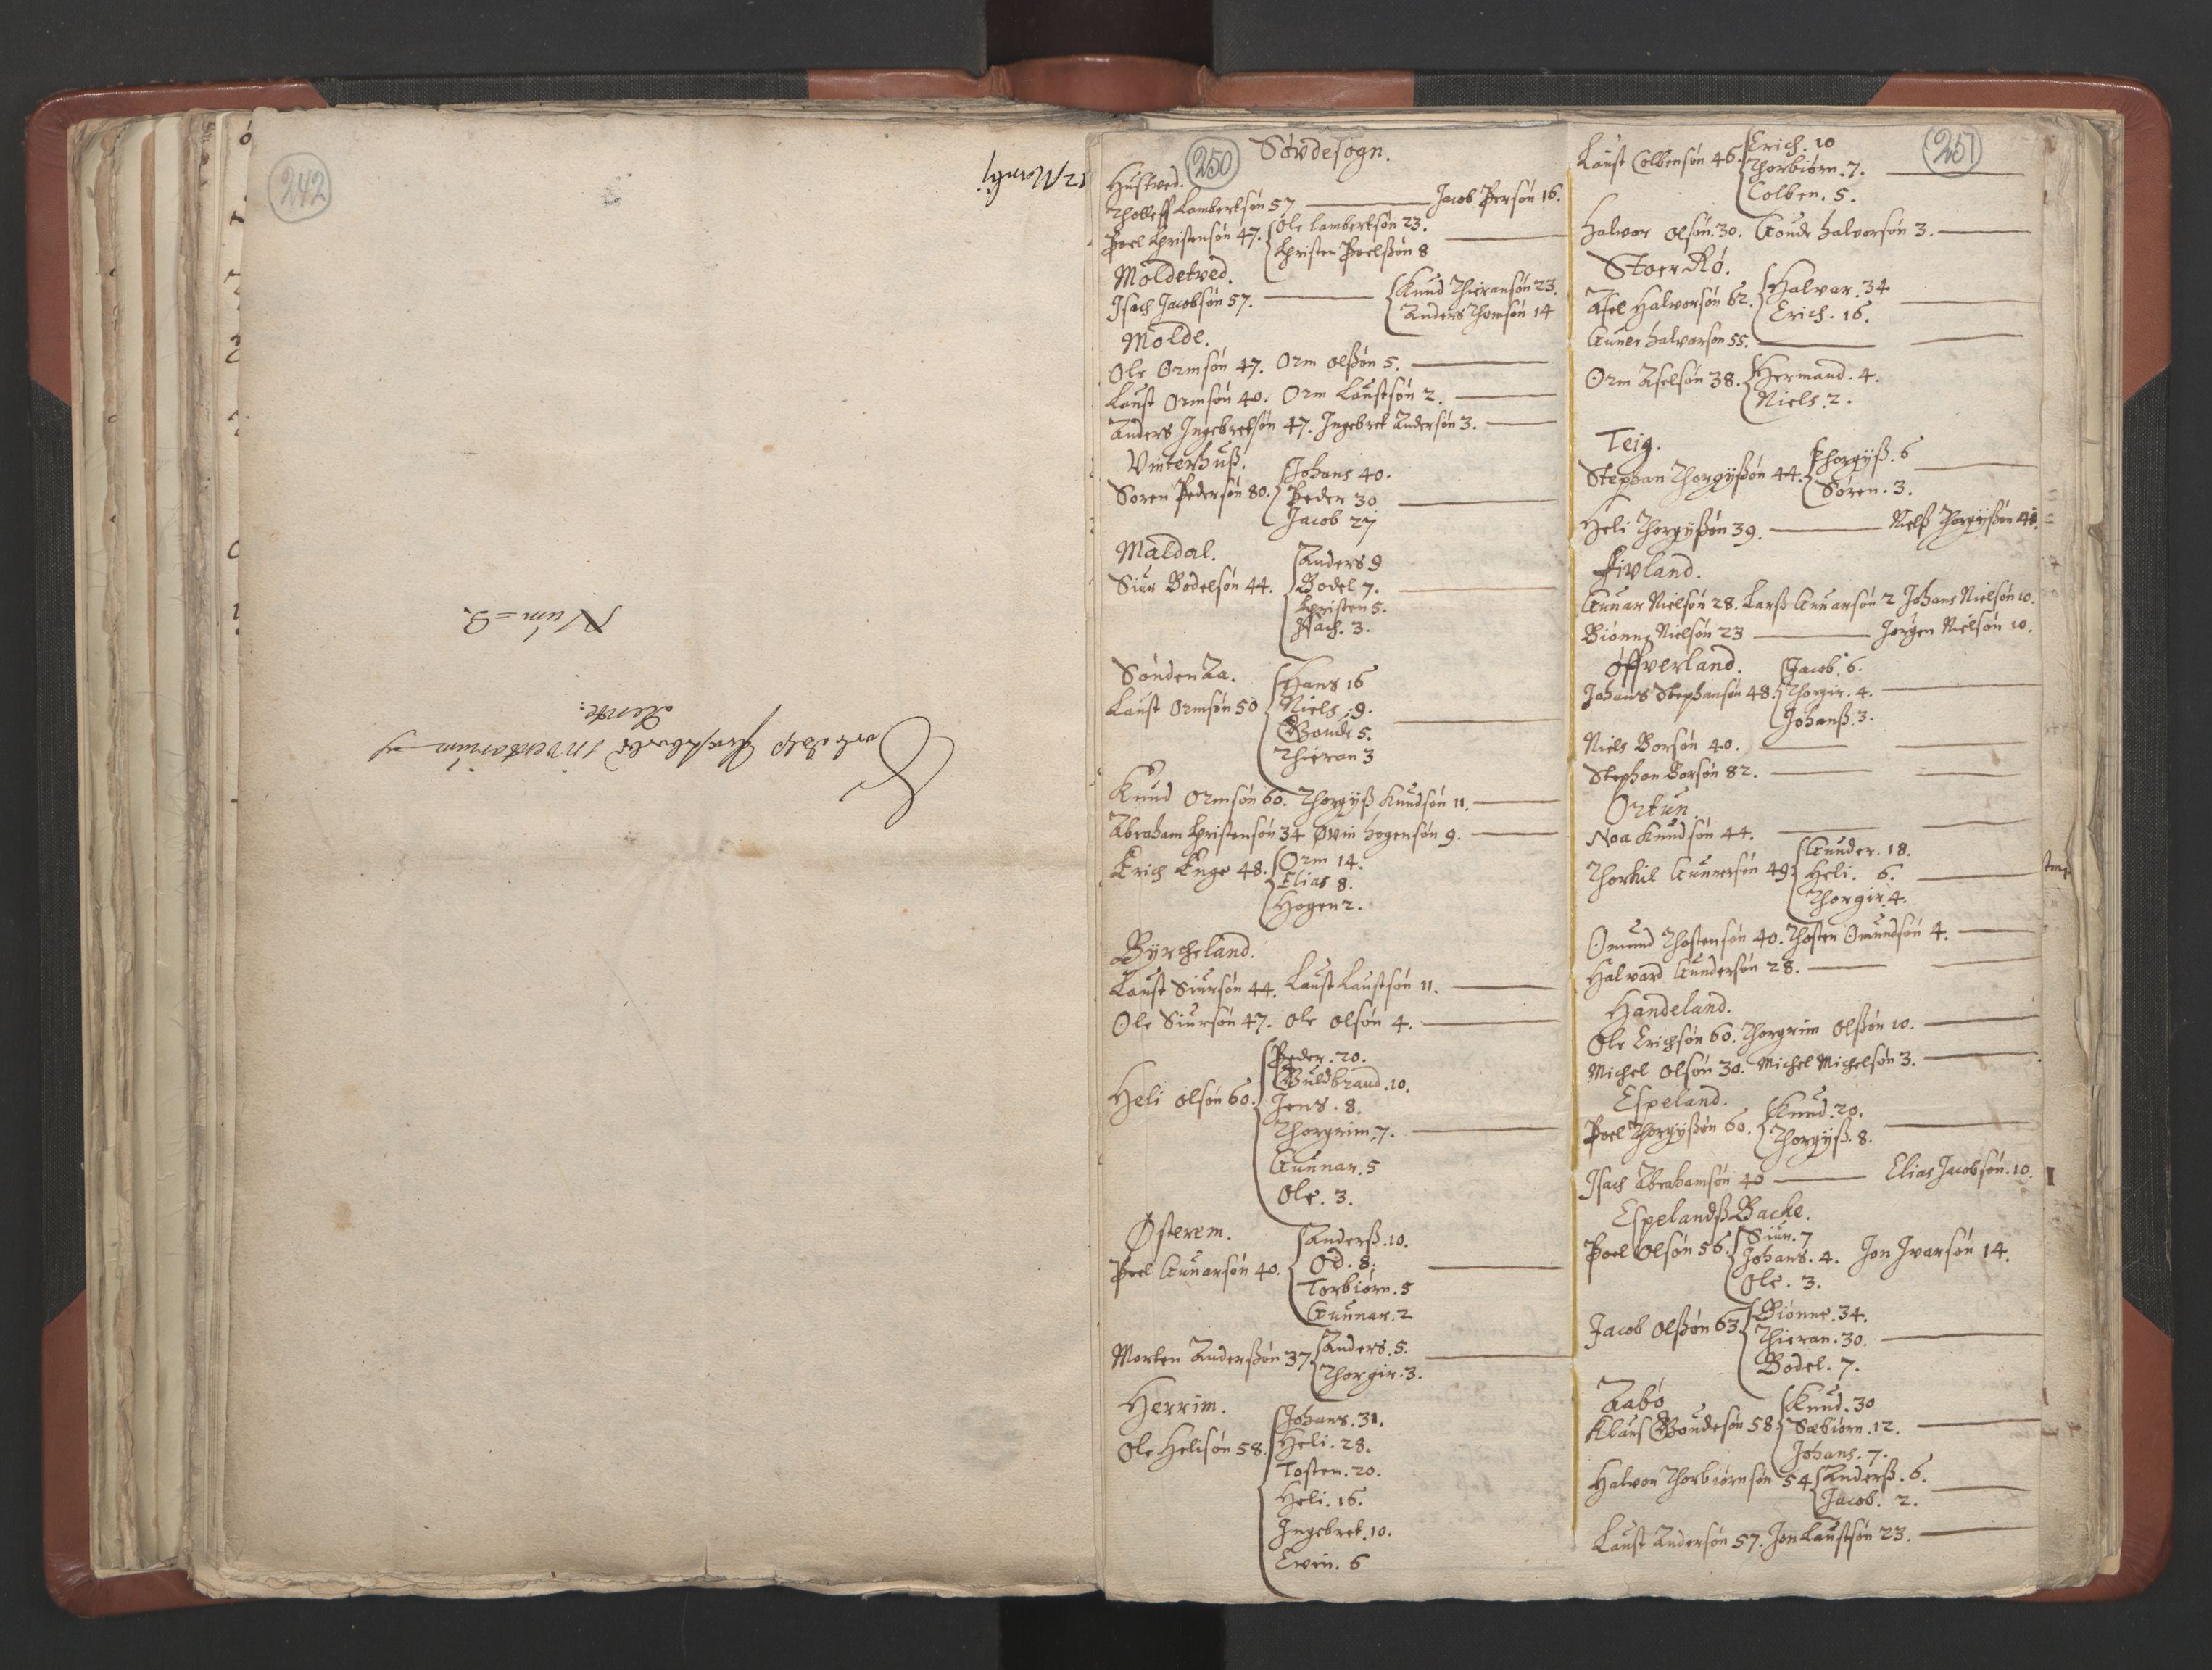 242
Num = 3.
250
Sövdesogn.
Hustved.
Tholleff Lambertsön 57 Jacob Persön 16.
Poel Christensön 47. Ole Lambertsön 23.
Christen Poelssön 8
Moldetved.
Isach Jacobsön 57. Knud Thieransön 23.
Anders Thomsön 14
Molde.
Ole Ormsön 47. Orm olssön 5.
Laust Ormsön 40. Orm Laustsön 2.
Anders Ingebretsön 47. Ingebret Andersön 3.
Vinterhuss.
Johans 40.
Soren Pedersön 80. Peder 30
Jacob 27
Maldal.
Anders 9
Siur Bodelsön 44. Bodel 7.
Christen 5.
Isach. 3.
Sönden Aa.
Hans 16
Laust Ormsön 50 Niels. 9.
Gonde 5.
Thieran 3
Knud Ormsön 60. Thorgyss Knudsön 11.
Abraham Christensön 34 Øvin hogensön 9.
Erich Enge 48. Orm 14.
Elias 8.
Hogen 2.
Byrcheland.
Laust Siursön 44. Laust Laustsön 11.
Ole Siursön 47. Ole olsön 4.
Peder. 20.
Guldbrand. 10.
Heli olsön 60. Jens. 8.
Thorgrim. 7.
Gunnar. 5
Ole. 3.
Østerem.
Anderss. 10.
Poel Gunarsön 40. Od. 8.
Torbiörn. 5
Gunnar. 2
Morten Anderssön 37 Anders. 5.
Thorgir. 3.
Herrim.
Johans. 31.
Ole Helisön 58. Heli. 28.
Tosten. 20.
Heli. 16.
Ingebret. 10.
Ewin. 6
251
Erich. 10
Laust Colbensön 46. Thorbiörn. 7.
Colben. 5.
Halvor Olsön. 30. Gonde halvorsön 3.
Stoer Rö.
Asel Halvorsön 62. Halvar. 34
Erich. 16.
Guner halvorsön 55.
Orm Aselsön 38. Hermand. 4.
Niels. 2.
Teig.
Stephan Thorgyssön 44. Thorgyss. 6
Sören. 3.
Heli Thorgyssön 39. Nielss Thorgyssön
Fivland.
Gunar Nielsön 28. Larss Gunarsön 2 Johans Nielsön 10.
Biönne Nielsön 23 Jörgen Nielsön 10.
Öffverland.
Jacob. 6.
Johans Stephansön 48. Thorgir. 4.
Johanss. 3.
Niels Borsön 40.
Stephan Borsön 82.
Ortun
Noa Knudsön 44.
Gunder. 18.
Thorkil Gunnersön 49 Heli. 6.
Thorgir. 4.
Omund Thostensön 40. Thosten Omundsön 4.
Halvard Gundersön 28.
Handeland.
Ole Erichsön 60. Thorgrim Olssön 10.
Michel Olsön 30. Michel Michelsön 3.
Espeland.
Poel Thorgyssön 60. Knud. 20.
Thorgyss. 8.
Isach Abrahamsön 40 Elias Jacobsön. 10.
Espelandss Backe.
Siur. 7
Poel Olsön 56. Johans. 4. Jon Ivarsön 14.
Ole. 3.
Biönne. 34.
Jacob Olssön 63. Thieran. 30.
Bodel. 7.
Aabö
Knud. 30
Klaus Gondesön 58. Sæbiörn. 12.
Johans. 7.
Halvor Thorbiörnsön 54. Anderss. 6.
Jacob. 2.
Laust Andersön 57. Jon Laustsön 23.